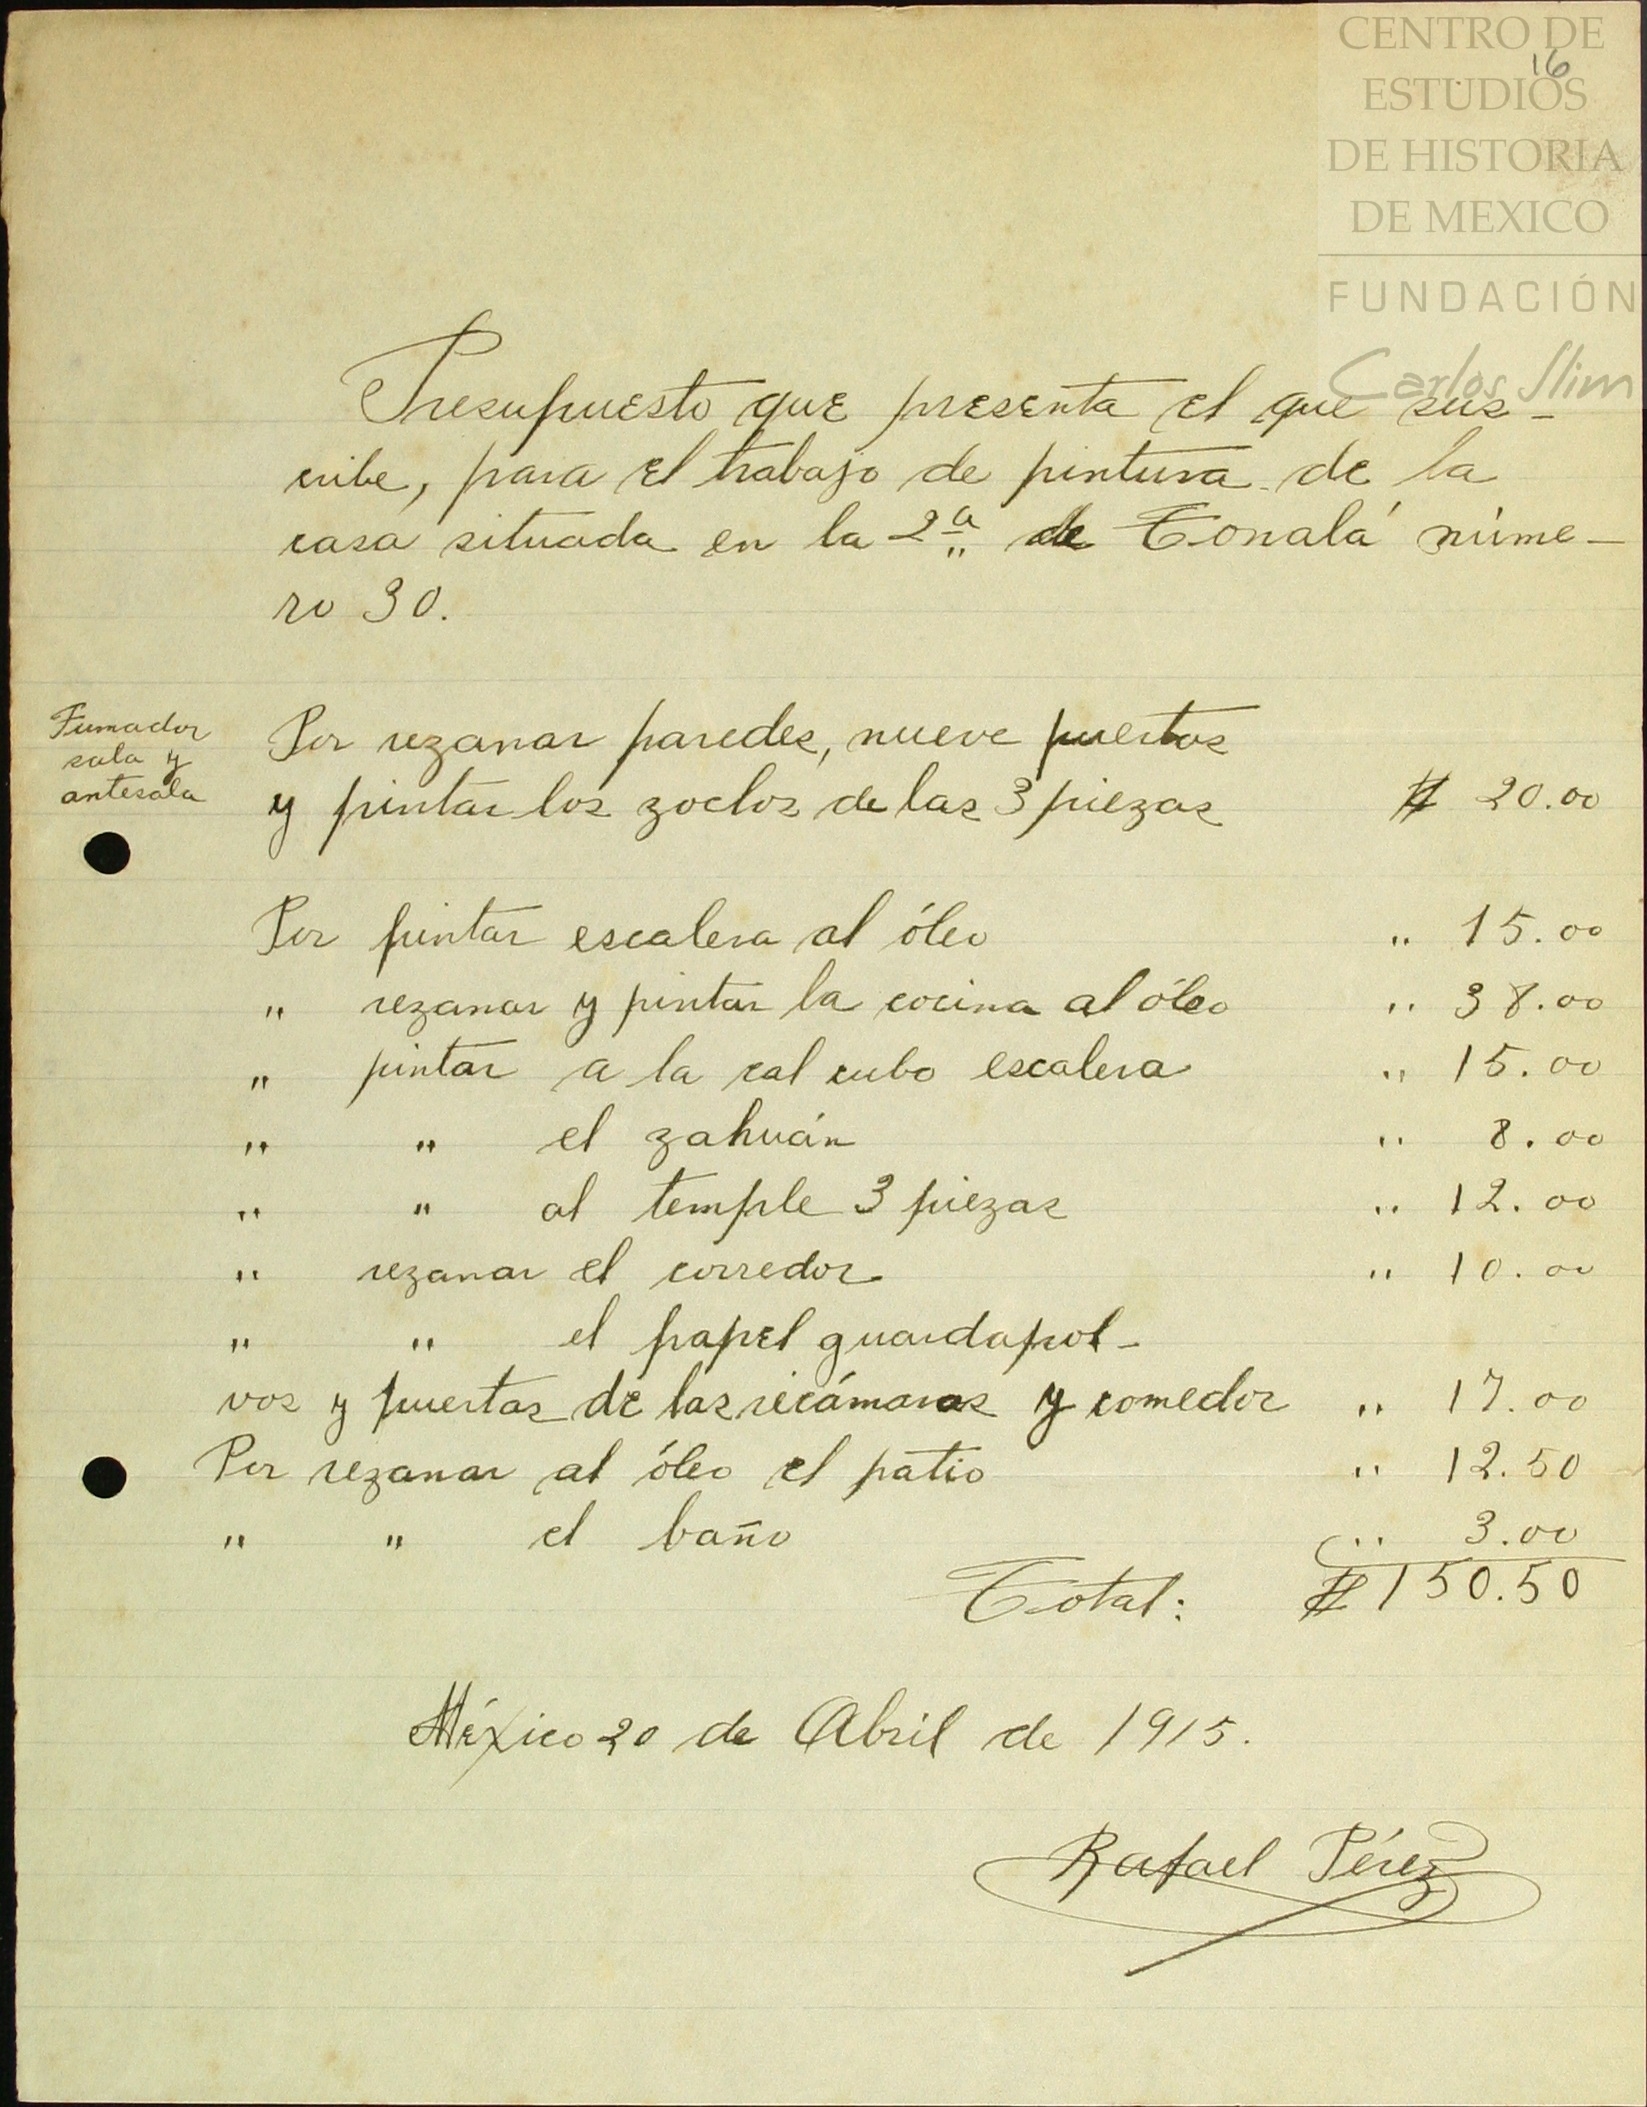 CENTRO DE
16
ESTUDIOS
DE HISTORIA
DE MEXICO
FUNDACIÓN
Carlos Slim
Presupuesto que presenta el que sus-
cribe, para el trabajo de pintura de la
casa situada en la 2ª de Tonalá núme-
ro 30.
Fumador
sala y
antesala
Por rezanar paredes, nueve puertas
y pintar los zoclos de las 3 piezas $ 20.00
Por pintar escalera al óleo " 15.00
" rezanar y pintar la cocina al óleo " 38.00
" pintar a la cal cubo escalera " 15.00
" " el zahuán " 8.00
" " al temple 3 piezas " 12.00
" rezanar el corredor " 10.00
" " el papel guardapol-
vos y puertas de las recámaras y comedor " 17.00
Por rezanar al óleo el patio " 12.50
" " el baño " 3.00
Total: $ 150.50
México 20 de Abril de 1915.
Rafael Pérez